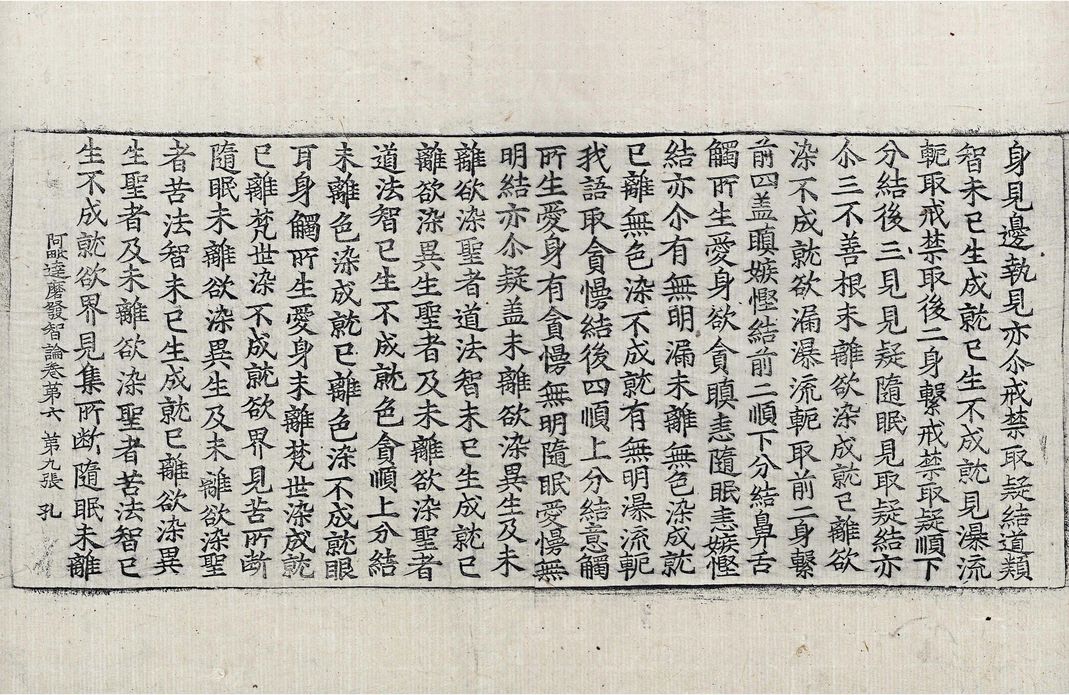 身見邊執見亦尒戒禁取疑結道類
智未已生成就已生不成就見瀑流
軛取戒禁取後二身繫戒禁取疑順下
分結後三見見疑隨眠見取疑結亦
尒三不善根未離欲染成就已離欲
染不成就欲漏瀑流軛取前二身繫
前四盖瞋嫉慳結前二順下分結鼻舌
觸所生愛身欲貪瞋恚隨眠恚嫉慳
結亦尒有無明漏未離無色染成就
已離無色染不成就有無明瀑流軛
我語取貪慢結後四順上分結意觸
所生愛身有貪慢無明隨眠愛慢無
明結亦尒疑盖未離欲染異生及未
離欲染聖者道法智未已生成就已
離欲染異生聖者及未離欲染聖者
道法智已生不成就色貪順上分結
未離色染成就已離色染不成就眼
耳身觸所生愛身未離梵世染成就
已離梵世染不成就欲界見苦所断
隨眠未離欲染異生及未離欲染聖
者苦法智未已生成就已離欲染異
生聖者及未離欲染聖者苦法智已
生不成就欲界見集所断隨眠未離
阿毗達磨發智論卷第六 第九張 孔